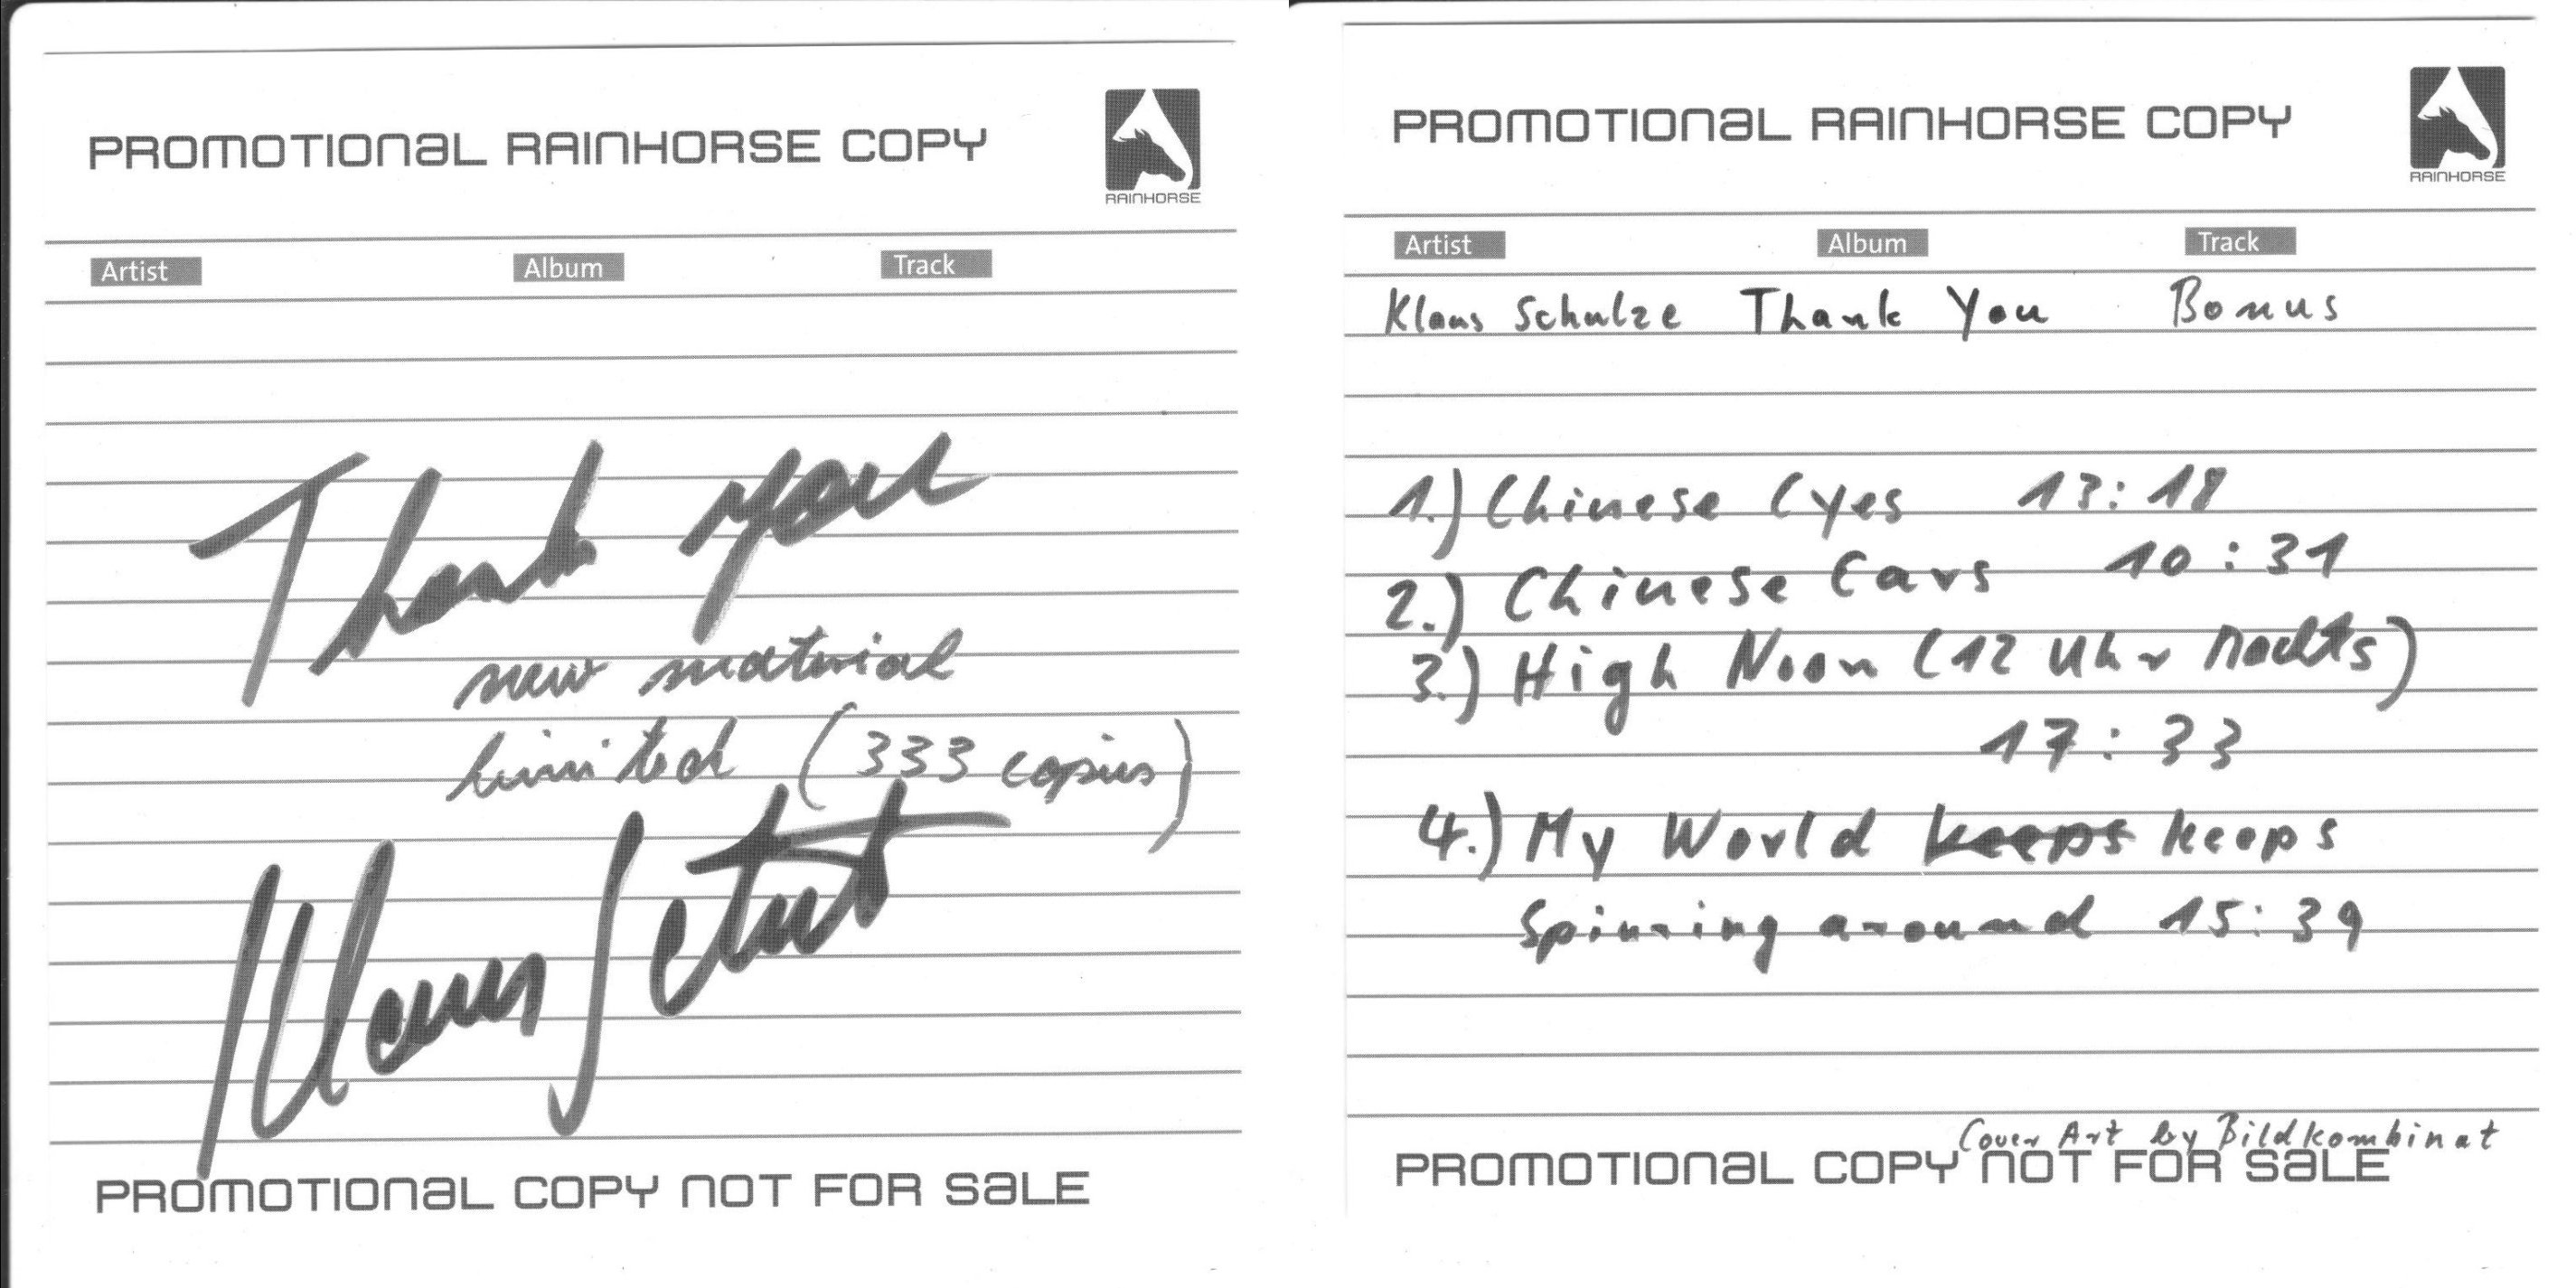 PROMOTIONAL RAINHORSE COPY
RAINHORSE
Artist Album Track
Thank you
new material
limited (333 copies)
PROMOTIONAL COPY NOT FOR SALE
PROMOTIONAL RAINHORSE COPY
RAINHORSE
Artist Album Track
Klaus Schulze Thank You Bonus
1.) Chinese Eyes 13:18
2.) Chinese Ears 10:31
3.) High Noon (12 Uhr Nachts)
17:33
4.) My World keeps keeps
Spinning around 15:39
Cover Art by Bildkombinat
PROMOTIONAL COPY NOT FOR SALE